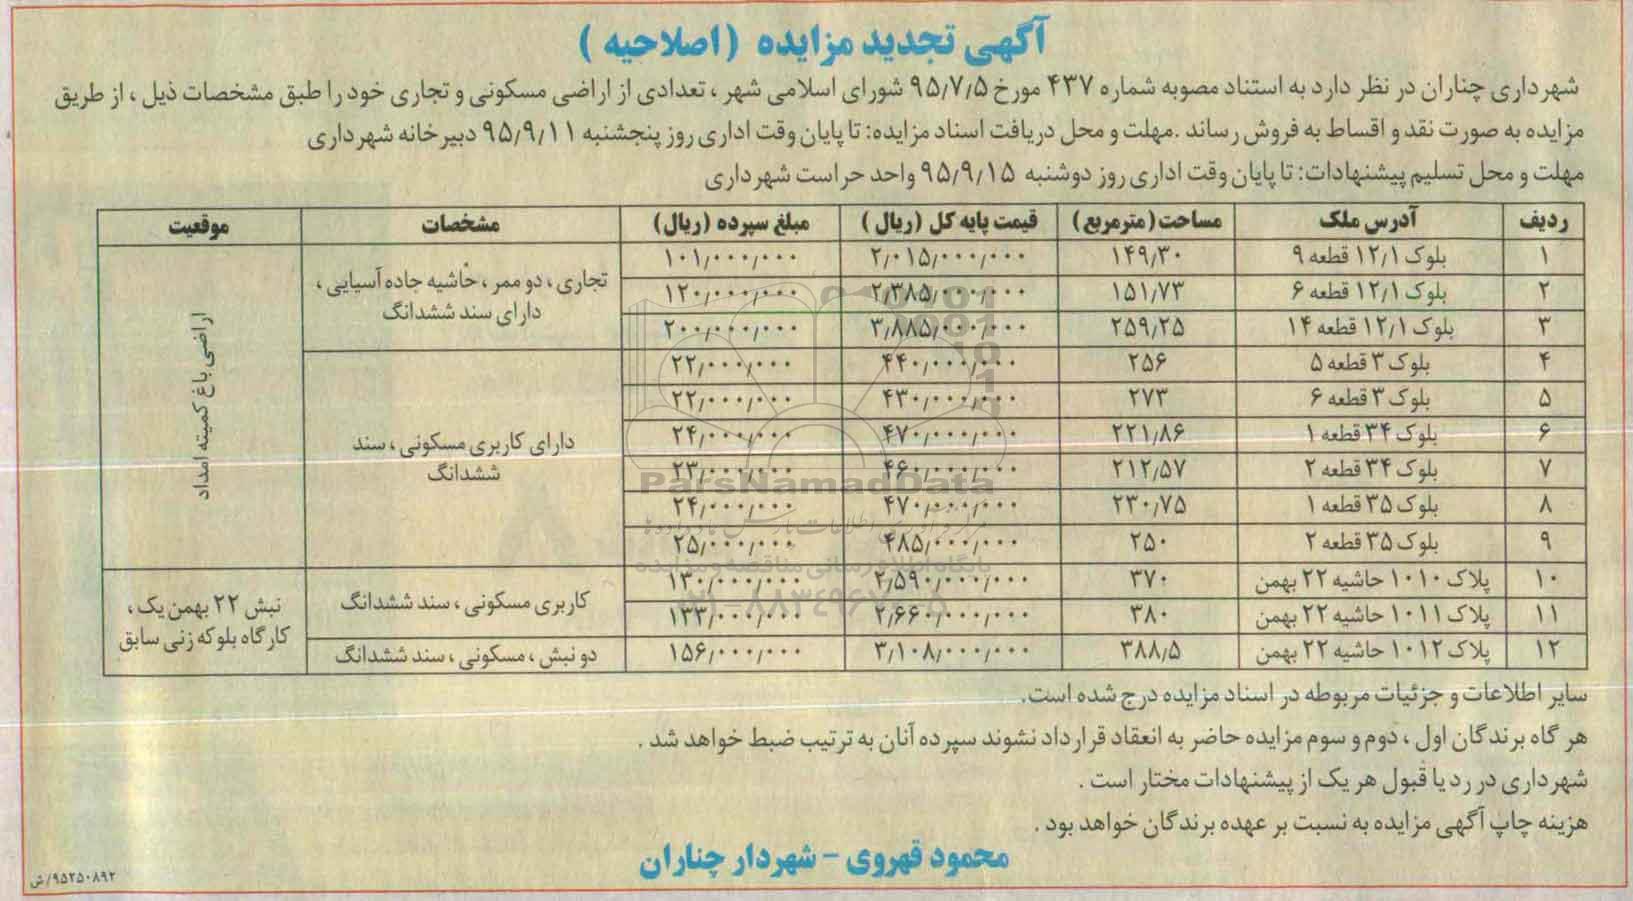 آگهی تجدید مزایده (اصلاحیه)
شهرداری چناران در نظر دارد به استناد مصوبه شماره ۴۳۷ مورخ ۹۵/۷/۵ شورای اسلامی شهر، تعدادی از اراضی مسکونی و تجاری خود را طبق مشخصات ذیل، از طریق
مزایده به صورت نقد و اقساط به فروش رساند. مهلت و محل دریافت اسناد مزایده: تا پایان وقت اداری روز پنجشنبه ۹۵/۹/۱۱ دبیرخانه شهرداری
مهلت و محل تسلیم پیشنهادات: تا پایان وقت اداری روز دوشنبه ۹۵/۹/۱۵ واحد حراست شهرداری
ردیف آدرس ملک مساحت (مترمربع) قیمت پایه کل (ریال) مبلغ سپرده (ریال) مشخصات موقعیت
۱ بلوک ۱۲/۱ قطعه ۹ ۱۴۹/۳۰ ۲/۰۱۵/۰۰۰/۰۰۰ ۱۰۱/۰۰۰/۰۰۰
تجاری، دو ممر، حاشیه جاده آسیایی،
دارای سند ششدانگ
اراضی باغ کمیته امداد
۲ بلوک ۱۲/۱ قطعه ۶ ۱۵۱/۷۳ ۲/۳۸۵/۰۰۰/۰۰۰ ۱۲۰/۰۰۰/۰۰۰
۳ بلوک ۱۲/۱ قطعه ۱۴ ۲۵۹/۲۵ ۳/۸۸۵/۰۰۰/۰۰۰ ۲۰۰/۰۰۰/۰۰۰
۴ بلوک ۳ قطعه ۵ ۲۵۶ ۴۴۰/۰۰۰/۰۰۰ ۲۲/۰۰۰/۰۰۰
دارای کاربری مسکونی، سند
ششدانگ
۵ بلوک ۳ قطعه ۶ ۲۷۳ ۴۳۰/۰۰۰/۰۰۰ ۲۲/۰۰۰/۰۰۰
۶ بلوک ۳۴ قطعه ۱ ۲۲۱/۸۶ ۴۷۰/۰۰۰/۰۰۰ ۲۴/۰۰۰/۰۰۰
۷ بلوک ۳۴ قطعه ۲ ۲۱۲/۵۷ ۴۶۰/۰۰۰/۰۰۰ ۲۳/۰۰۰/۰۰۰
۸ بلوک ۳۵ قطعه ۱ ۲۳۰/۷۵ ۴۷۰/۰۰۰/۰۰۰ ۲۴/۰۰۰/۰۰۰
۹ بلوک ۳۵ قطعه ۲ ۲۵۰ ۴۸۵/۰۰۰/۰۰۰ ۲۵/۰۰۰/۰۰۰
۱۰ پلاک ۱۰۱۰ حاشیه ۲۲ بهمن ۳۷۰ ۲/۵۹۰/۰۰۰/۰۰۰ ۱۳۰/۰۰۰/۰۰۰
کاربری مسکونی، سند ششدانگ
نبش ۲۲ بهمن یک،
کارگاه بلوکه زنی سابق
۱۱ پلاک ۱۰۱۱ حاشیه ۲۲ بهمن ۳۸۰ ۲/۶۶۰/۰۰۰/۰۰۰ ۱۳۳/۰۰۰/۰۰۰
۱۲ پلاک ۱۰۱۲ حاشیه ۲۲ بهمن ۳۸۸/۵ ۳/۱۰۸/۰۰۰/۰۰۰ ۱۵۶/۰۰۰/۰۰۰ دو نبش، مسکونی، سند ششدانگ
ParsNamadData
پایگاه اطلاع رسانی مناقصه و مزایده
سایر اطلاعات و جزئیات مربوطه در اسناد مزایده درج شده است.
هر گاه برندگان اول، دوم و سوم مزایده حاضر به انعقاد قرارداد نشوند سپرده آنان به ترتیب ضبط خواهد شد.
شهرداری در رد یا قبول هر یک از پیشنهادات مختار است.
هزینه چاپ آگهی مزایده به نسبت بر عهده برندگان خواهد بود.
محمود قهروی - شهردار چناران
۹۵۲۵۰۸۹۲/ش